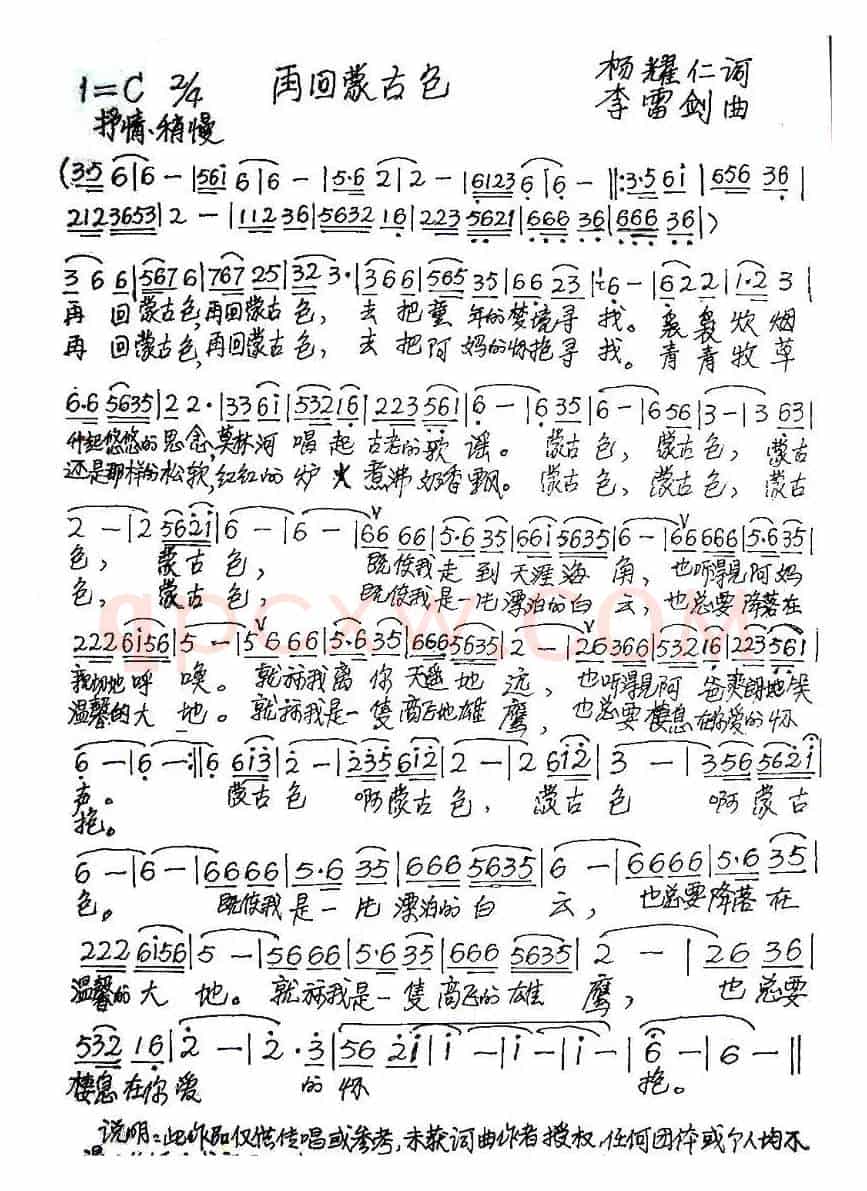 再回蒙古包
杨耀仁词
1=C 2/4
李雷剑曲
抒情、稍慢
(3·5 6|6 - |561 6|6 - |5·6 2|2 - |6123 6|6 - ‖:3·5 61|656 36|
2123653|2 - |112 36|5632 16|223 5621|666 36|666 36|)
3 6 6|567 6|767 25|32 3·|366|565 35|66 23|6 - |622|1·2 3|
再 回蒙古包,再回蒙古包, 去 把童 年的梦境寻 找。袅 袅 炊烟
再 回蒙古包,再回蒙古包, 去 把阿 妈的怀抱寻 找。青 青 牧草
6·6 5635|22·|33 61|532 16|223 561|6 - |6 35|6 - |6 56|3 - |3 63|
升起悠悠的思念,莫林河 唱 起 古老的歌 谣。 蒙古包, 蒙古包, 蒙古
还是那样的松软,红红的 炉 火 煮沸 奶香飘。 蒙古包, 蒙古包, 蒙古
2 - |2 5621|6 - |6 - |66 66|5·6 35|661 5635|6 - |66 666|5·6 35|
包, 蒙古包, 既使我 走 到 天涯海 角, 也听得见阿妈
包, 蒙古包, 既使我是一片漂泊的白 云, 也总要降落在
222 6156|5 - |5 6 66|5·6 35|666 5635|2 - |26 366|532 16|223 561|
地呼 唤。 就被我离 你 天遥地 远, 也听得见阿 爸爽朗地笑
温馨的大 地。 就被我是一 隻高飞地雄 鹰, 也总要栖息在你爱的怀
6 - |6 - :‖6 613|2 - |235 612|2 - |2 612|3 - |356 5621|
声。 蒙古包 啊蒙古包, 蒙古包 啊蒙古
抱。
6 - |6 - |6666|5·6 35|666 5635|6 - |6666|5·6 35|
包。 既使我是一片 漂泊的白 云, 也总要降落在
222 6156|5 - |5666|5·6 35|666 5635|2 - |26 36|
温馨的大 地。 就被我是一隻高飞的雄 鹰, 也总要
532 16|2 - |2·3|56 21|1 - |1 - |1 - |6 - |6 - ‖
栖息在你爱 的怀 抱。
说明:此作品仅供传唱或参考,未获词曲作者授权,任何团体或个人均不
qpcxw.COM